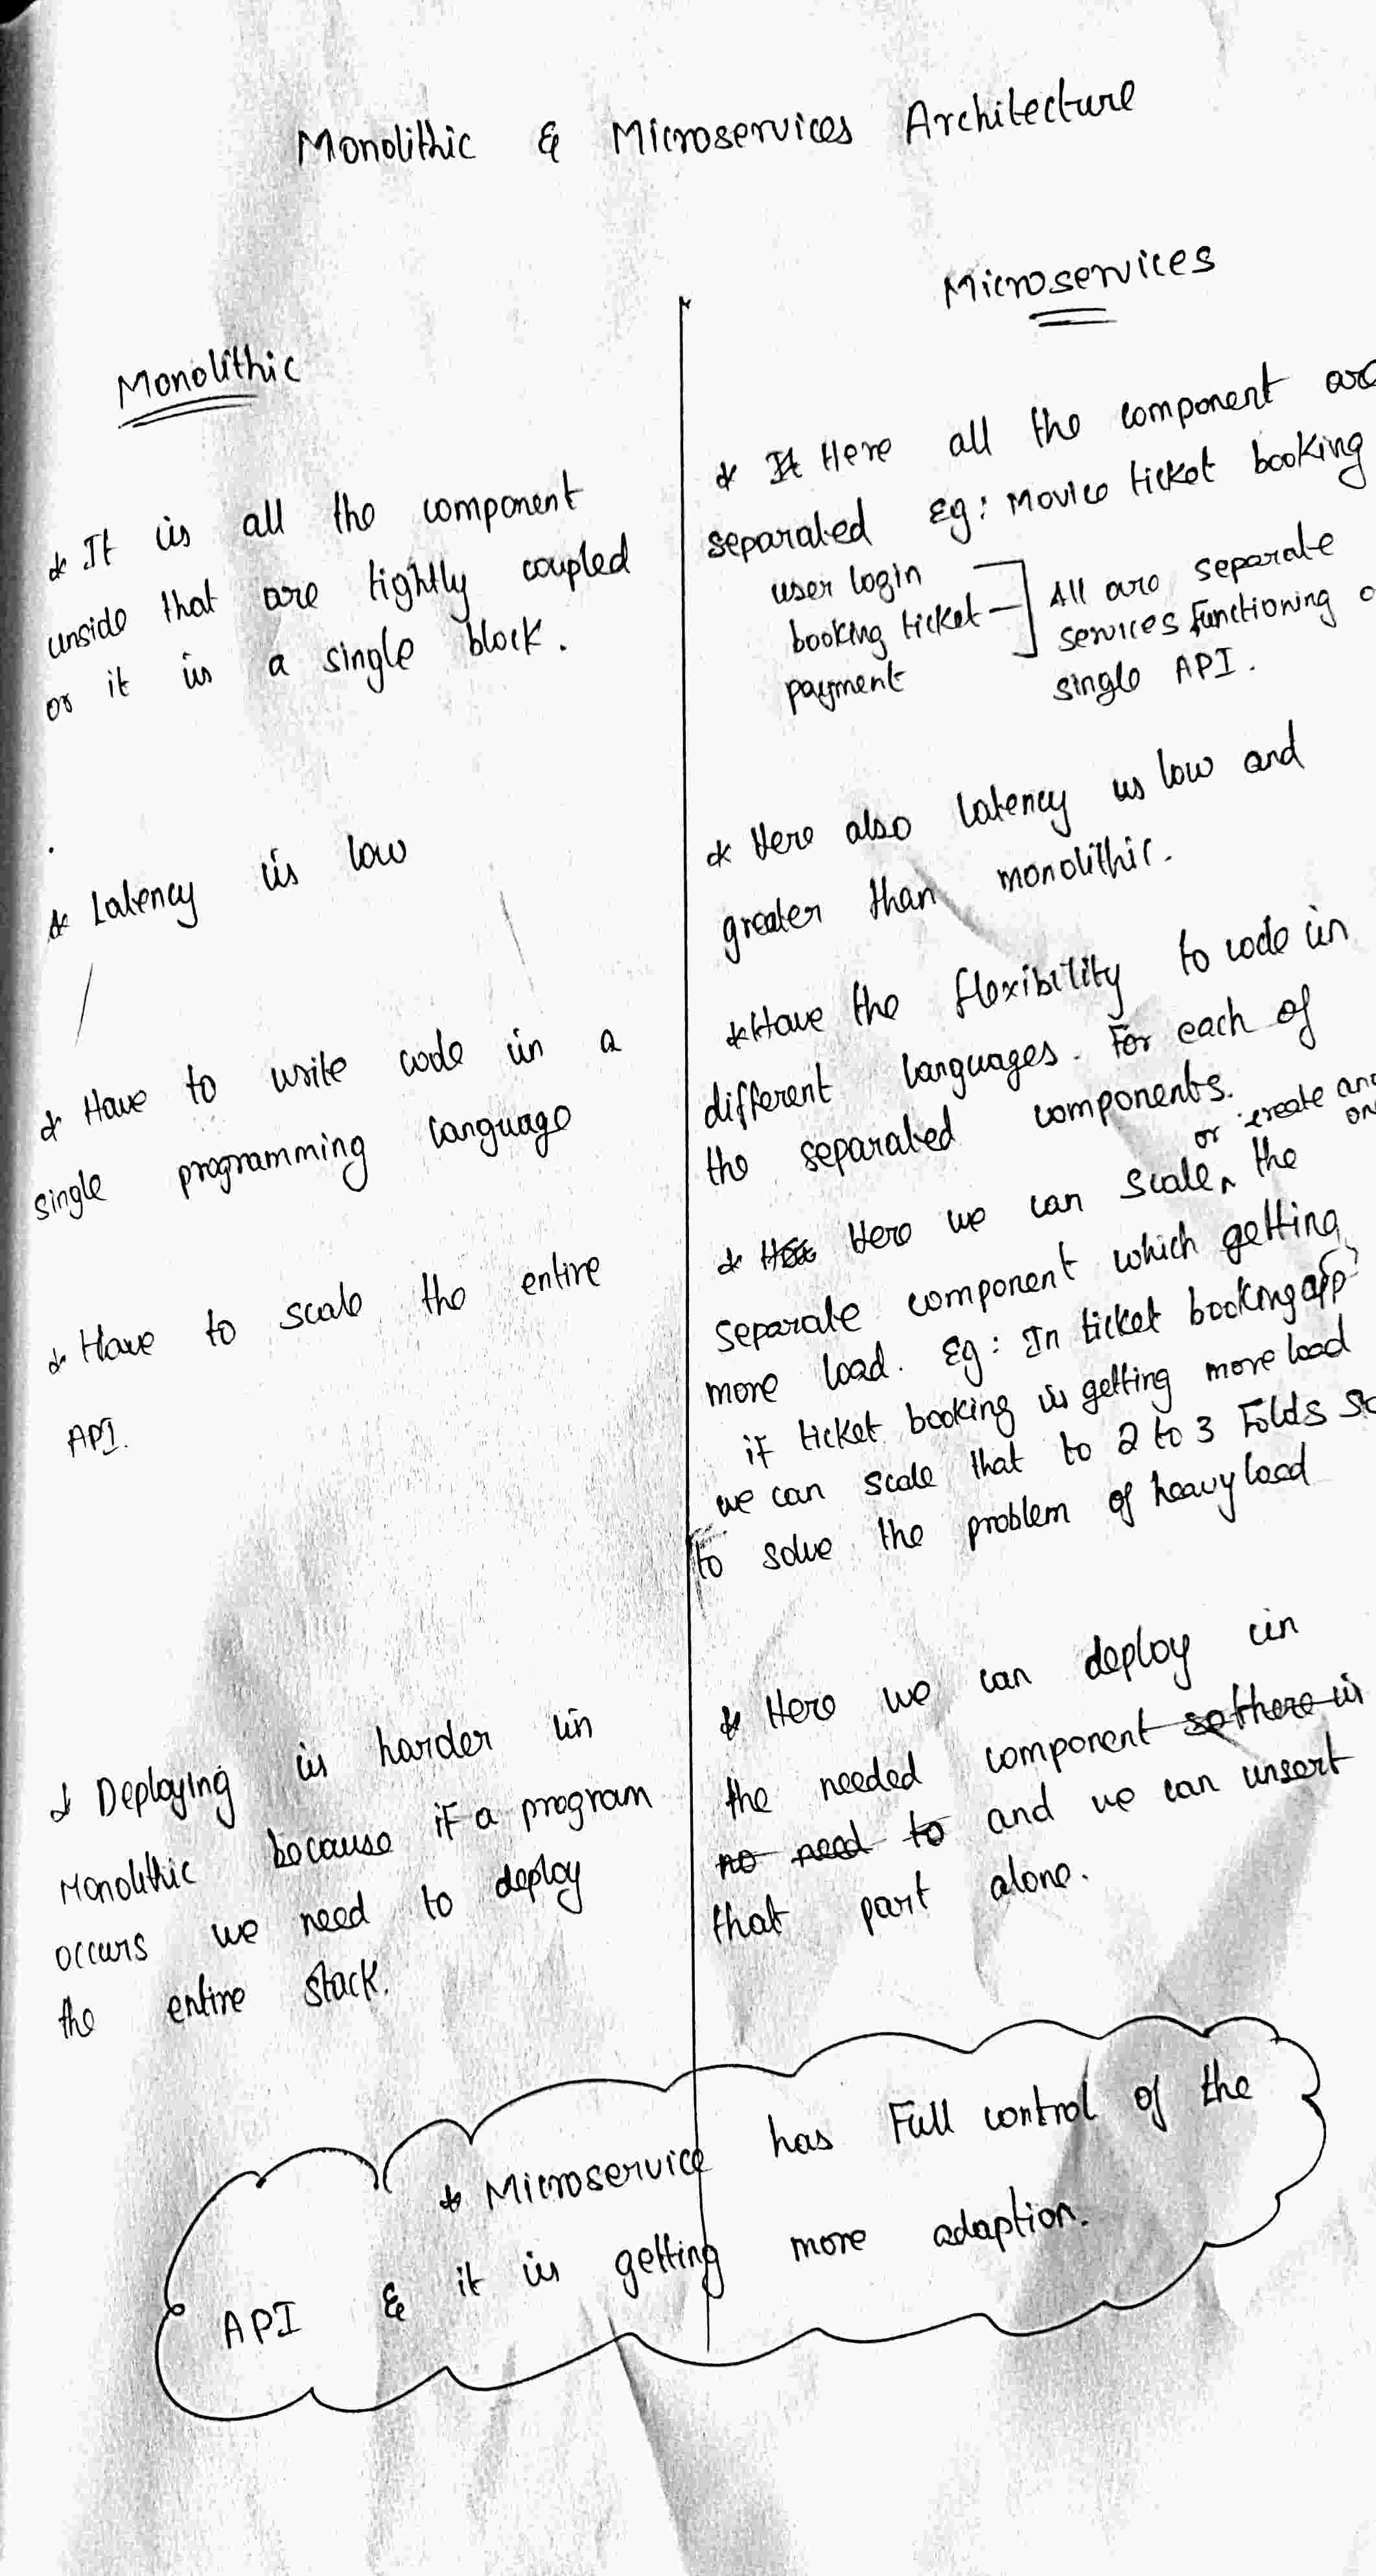 Monolithic & Microservices Architecture
Monolithic
* It is all the component
inside that are tightly coupled
or it is a single block.
* Latency is low
* Have to write code in a
single programming language
* Have to scale the entire
API.
* Deploying is harder in
Monolithic because if a program
occurs we need to deploy
the entire stack.
Microservices
* It Here all the component are
separated Eg: Movice ticket booking
user login
booking ticket
payment
All are separate
services functioning
single API.
* Here also latency is low and
greater than monolithic.
* Have the flexibility to code in
different languages. For each of
the separated components.
or create
* Here we can scale the
separate component which getting
more load. Eg: In ticket booking app
if ticket booking is getting more load
we can scale that to 2 to 3 Folds
to solve the problem of heavy load
* Here we can deploy in
the needed component so there is
no need to and we can insert
that part alone.
* Microservice has Full control of the
API & it is getting more adaption.